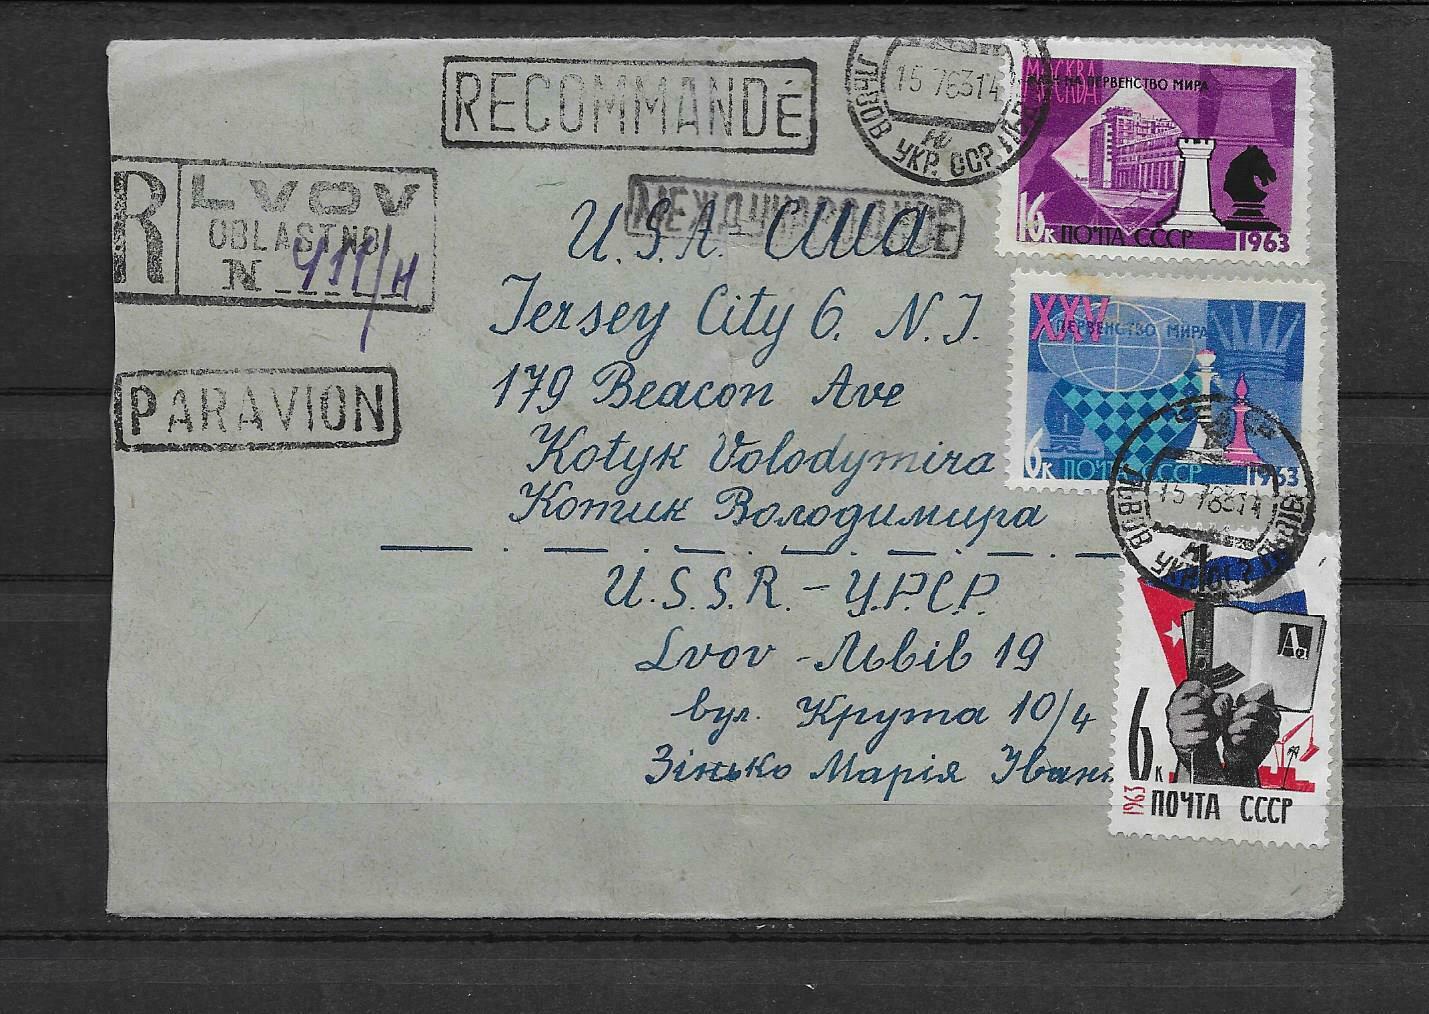 RECOMMANDÉ
R LVOV
OBLASTNO
N 411/н
МЕЖДУНАРОДНОЕ
PARAVION
U.S.A. США
Jersey City 6. N.J.
179 Beacon Ave
Kotyk Volodymira
Котик Володимира
U.S.S.R. - У.Р.С.Р.
Lvov - Львів 19
вул. Крута 10/4
Зінько Марія Іван
ЛЬВОВ УКР. ССР ЛЬВІВ
15 7 63 14
МОСКВА
НА ПЕРВЕНСТВО МИРА
16 к ПОЧТА СССР 1963
XXV ПЕРВЕНСТВО МИРА
6 к ПОЧТА СССР 1963
ЛЬВОВ УКР. ССР ЛЬВІВ
15 7 63 14
А
6 к
1963 ПОЧТА СССР